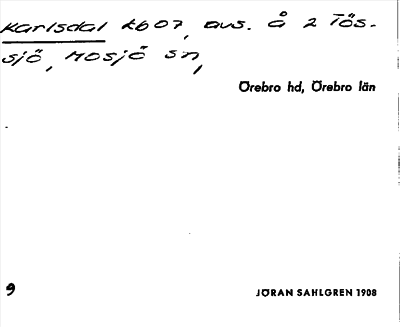 Karlsdal tb 07, avs. å 2 Tös-
sjö, Mosjö sn,
Örebro hd, Örebro län
9
JÖRAN SAHLGREN 1908